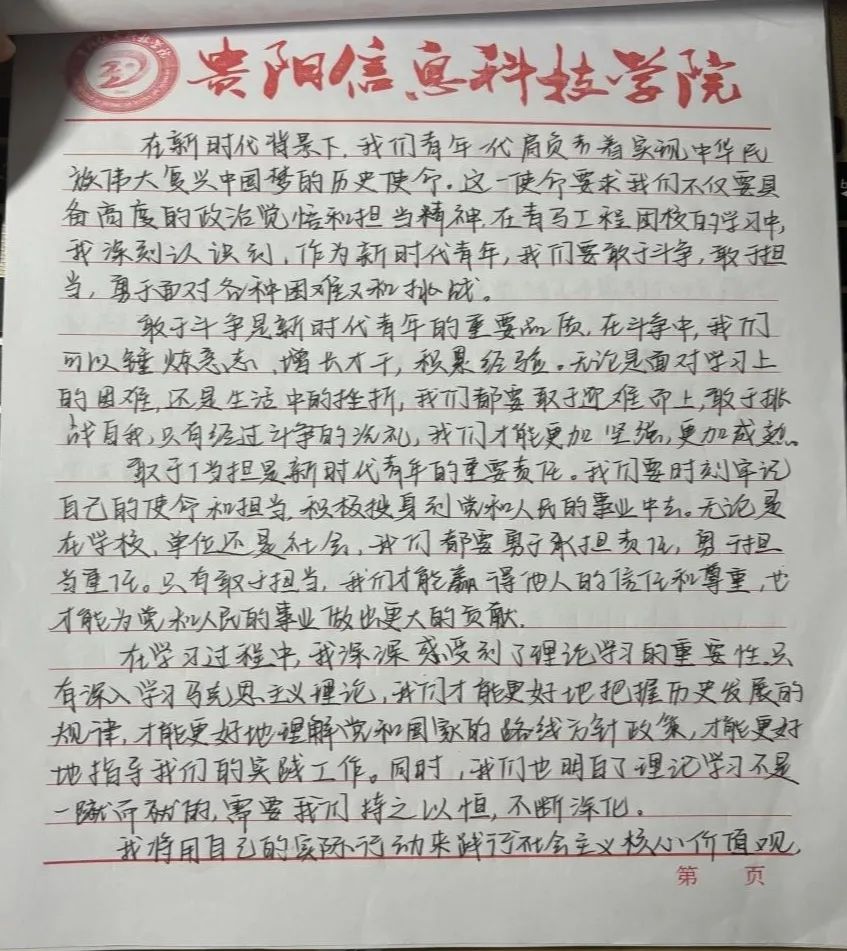 贵阳信息科技学院
在新时代背景下,我们青年一代肩负着实现中华民
族伟大复兴中国梦的历史使命。这一使命要求我们不仅要具
备高度的政治觉悟和担当精神,在青马工程团校的学习中,
我深刻认识到,作为新时代青年,我们要敢于斗争,敢于担
当,勇于面对各种困难又和挑战。
敢于斗争是新时代青年的重要品质,在斗争中,我们
可以锤炼意志,增长才干,积累经验。无论是面对学习上
的困难,还是生活中的挫折,我们都要敢于迎难而上,敢于挑
战自我,只有经过斗争的洗礼,我们才能更加坚强,更加成熟。
敢于当担是新时代青年的重要责任。我们要时刻牢记
自己的使命和担当,积极投身到党和人民的事业中去。无论是
在学校,单位还是社会,我们都要勇于承担责任,勇于担
当重任。只有敢于担当,我们才能赢得他人的信任和尊重,也
才能为党和人民的事业做出更大的贡献.
在学习过程中,我深深感受到了理论学习的重要性,只
有深入学习马克思主义理论,我们才能更好地把握历史发展的
规律,才能更好地理解党和国家的路线方针政策,才能更好
地指导我们的实践工作。同时,我们也明白了理论学习不是
一蹴而就的,需要我们持之以恒,不断深化。
我将用自己的实际行动来践行社会主义核心价值观,
第 页